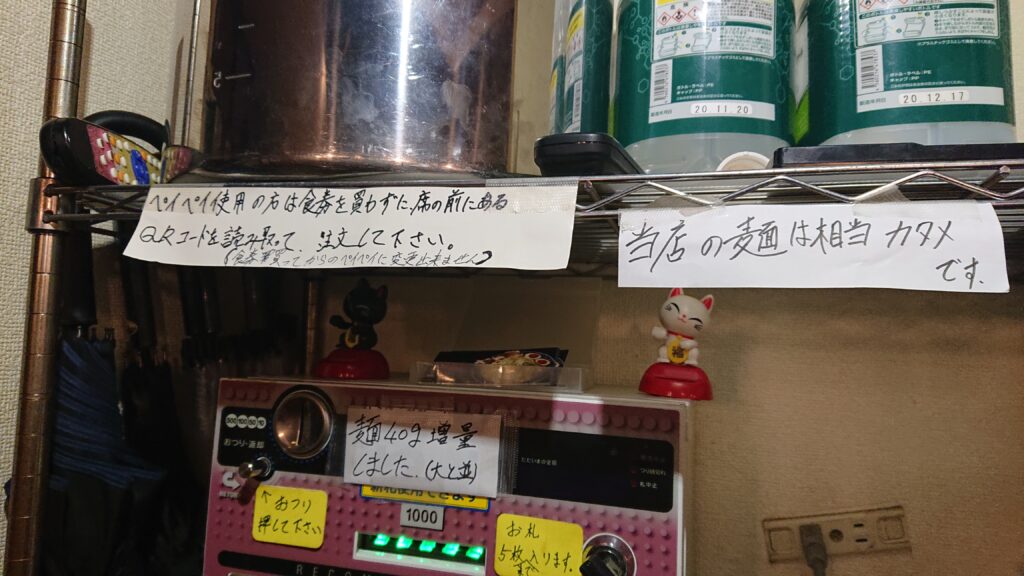 20.11.20
20.12.17
ペイペイ使用の方は食券を買わずに、席の前にある
QRコードを読み取って、注文して下さい。
(食券買ってからのペイペイに変更出来ません)
当店の麺は相当カタメ
です。
福
500 100 50 10
おつり・返却
麺40g増量
しました。(大と並)
ただいまの金額
つり銭切れ
札中止
新札使用できます
1000
↑おつり
押して下さい
お札
5枚まで入ります。